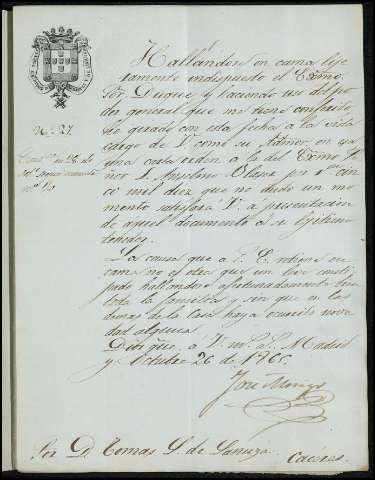 Nº 27.
Hallándose en cama lije
ramente indispuesto el Exmo.
Sor Duque, y haciendo uso del po
der general que me tiene conferido
he girado con esta fecha a la vista
cargo de V. como su Admor. en
una carta orden a la del Exmo. Se
ñor D. Anselmo Blaser por rs. cin
co mil diez que no dudo un mo
mento satisfará V. a presentacion
de aquel documento á su legítimo
tenedor.
La causa que a S. E. retiene en
cama no es otra que un leve consti
pado hallandose afortunadamente buena
toda la familia y sin que en las
de la Casa haya ocurrido nove
dad alguna.
Dios gue. á V. ms. as. Madrid
y Octubre 26 de 1865.
José
Sor. D. Tomas S. de Lanuza. Caceres.